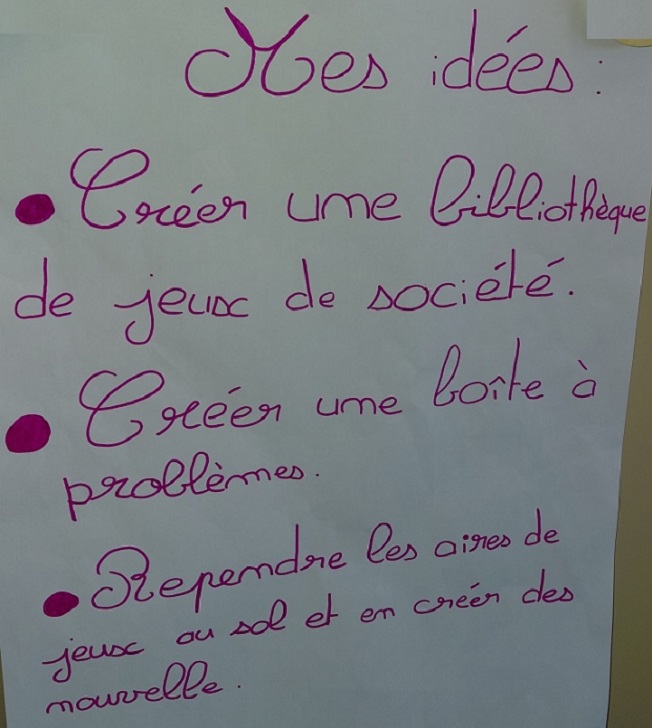 Mes idées :
• Créer une bibliothèque
de jeux de société.
• Créer une boîte à
problèmes.
• Rependre les aires de
jeux au sol et en créér des
nouvelle.